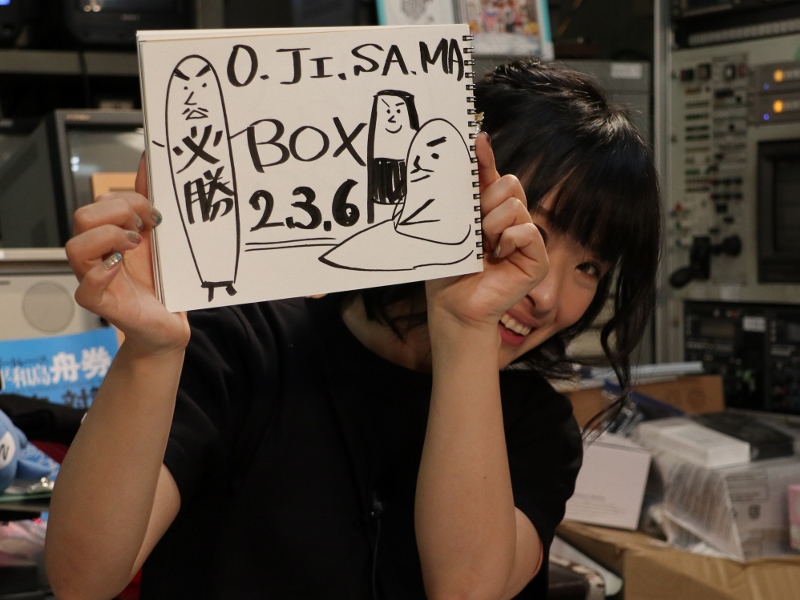 O.JI.SA.MA
必勝
BOX
2.3.6
和島舟券
対